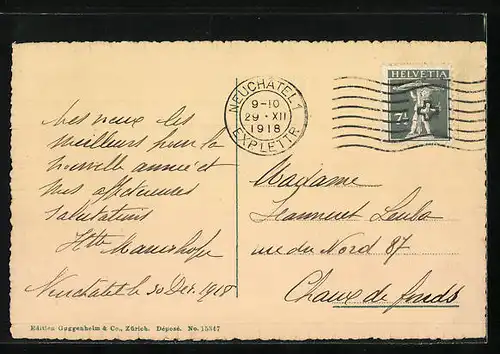 NEUCHATEL 1
9-10
29·XII
1918
EXP. LETTR.
HELVETIA
7½
Mes vœux les
meilleurs pour la
nouvelle année et
mes affectueuses
salutations
Neuchatel le 30 Déc. 1918
Madame
Jeanneret
rue du Nord 87
Chaux de fonds
Edition Guggenheim & Co., Zürich. Déposé. No. 15347